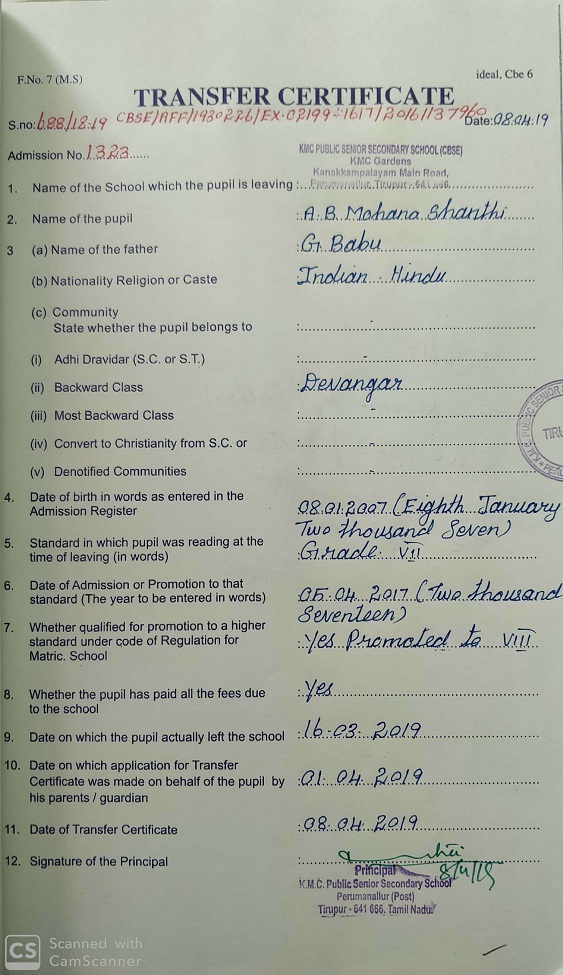 F.No. 7 (M.S)
ideal, Cbe 6
TRANSFER CERTIFICATE
S.no: 688/18-19 CBSE/AFF/1930226/EX-02199-1617/2016/137960 Date: 08.04.19
Admission No. 1323
KMC PUBLIC SENIOR SECONDARY SCHOOL (CBSE)
KMC Gardens
Kanakkampalayam Main Road,
1. Name of the School which the pupil is leaving : Perumanallur, Tirupur - 641 666.
2. Name of the pupil : A.B. Mohana Shanthi
3 (a) Name of the father : G. Babu
(b) Nationality Religion or Caste : Indian. Hindu
(c) Community
State whether the pupil belongs to : -
(i) Adhi Dravidar (S.C. or S.T.) : -
(ii) Backward Class : Devangar
(iii) Most Backward Class : -
(iv) Convert to Christianity from S.C. or : -
(v) Denotified Communities : -
4. Date of birth in words as entered in the
Admission Register : 08.01.2007 (Eighth January
Two thousand Seven)
5. Standard in which pupil was reading at the
time of leaving (in words) : Grade VII
6. Date of Admission or Promotion to that
standard (The year to be entered in words) : 05.04.2017 (Two thousand
Seventeen)
7. Whether qualified for promotion to a higher
standard under code of Regulation for : Yes Promoted to VIII
Matric. School
8. Whether the pupil has paid all the fees due : Yes
to the school
9. Date on which the pupil actually left the school : 16-03-2019
10. Date on which application for Transfer
Certificate was made on behalf of the pupil by : 01.04.2019
his parents / guardian
11. Date of Transfer Certificate : 08.04.2019
12. Signature of the Principal :
8/4/19
Principal
K.M.C. Public Senior Secondary School
Perumanallur (Post)
Tirupur - 641 666. Tamil Nadu.
K.M.C. PUBLIC SENIOR
TIRU
PERU
CS Scanned with
CamScanner